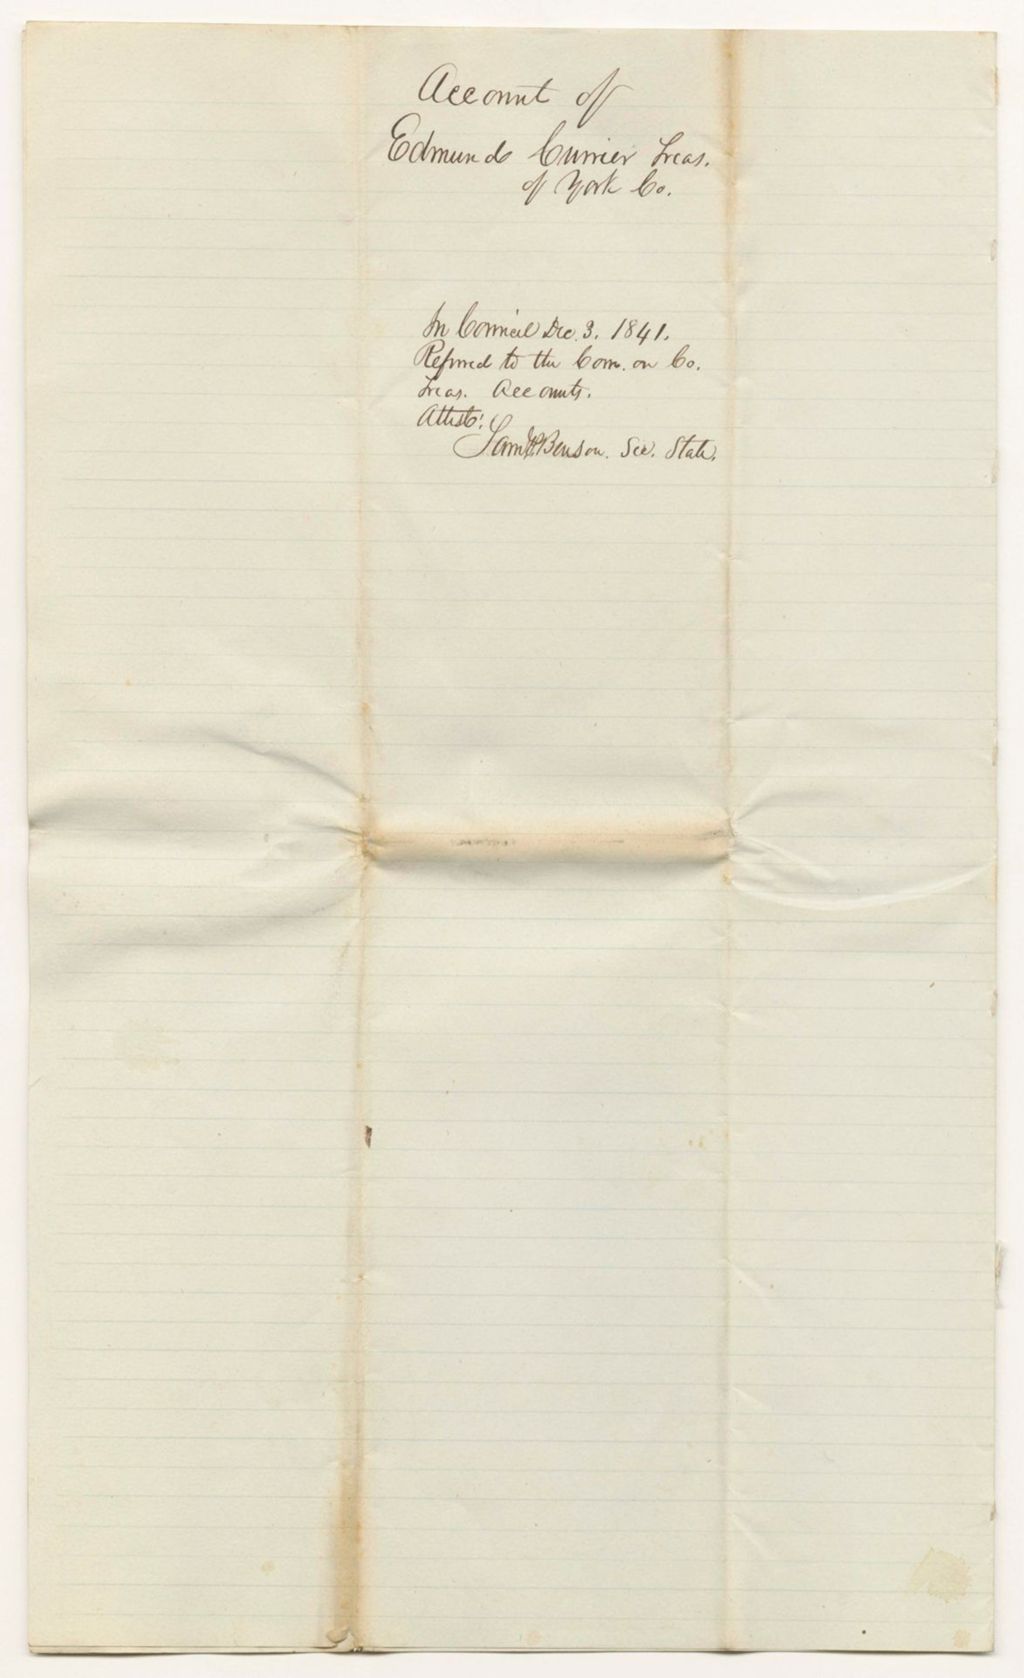 Account of
Edmund Currier Treas.
of York Co.
In Council Dec. 3. 1841.
Referred to the Com. on Co.
Treas. Accounts.
Attest:
Sam P Benson. Sec. State.